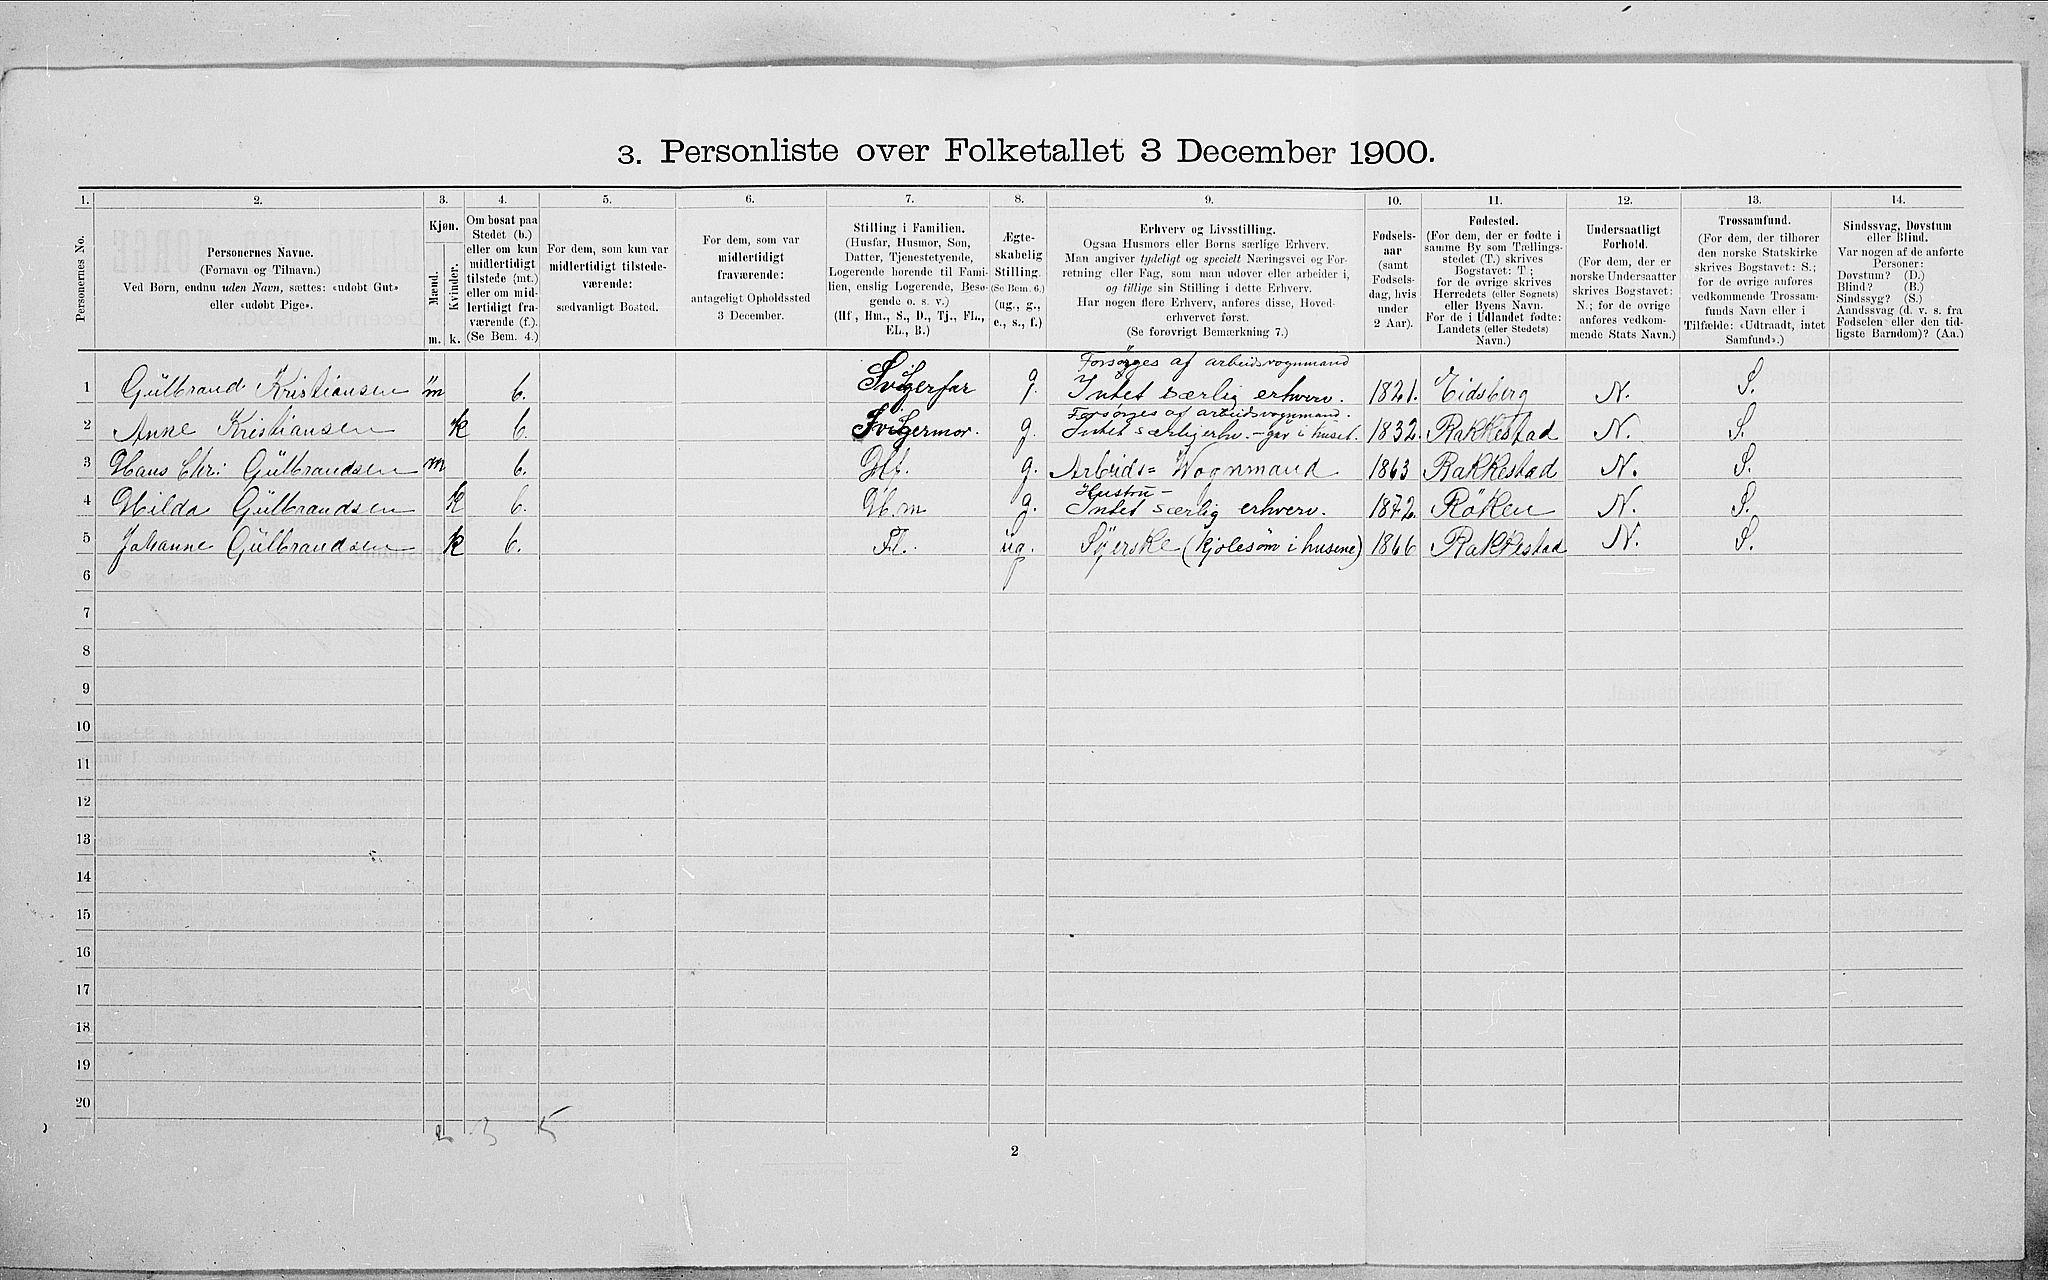 3. Personliste over Folketallet 3 December 1900.
1. 2. 3. 4. 5. 6. 7. 8. 9. 10. 11. 12. 13. 14.
Personernes No.
Personernes Navne.
(Fornavn og Tilnavn.)
Ved Børn, endnu uden Navn, sættes: «udøbt Gut»
eller «udøbt Pige».
Kjøn.
Mænd.
Kvinder.
m. k.
Om bosat paa
Stedet (b.)
eller om kun
midlertidigt
tilstede (mt.)
eller om mid-
lertidigt fra-
værende (f.).
(Se Bem. 4.)
For dem, som kun var
midlertidigt tilstede-
værende:
sædvanligt Bosted.
For dem, som var
midlertidigt
fraværende:
antageligt Opholdssted
3 December.
Stilling i Familien.
(Husfar, Husmor, Søn,
Datter, Tjenestetyende,
Logerende hørende til Fami-
lien, enslig Logerende, Besø-
gende o. s. v.)
(Hf, Hm., S., D., Tj., FL.,
EL., B.)
Ægte-
skabelig
Stilling.
(Se Bem. 6.)
(ug., g.,
e., s., f.)
Erhverv og Livsstilling.
Ogsaa Husmors eller Børns særlige Erhverv.
Man angiver tydeligt og specielt Næringsvei og For-
retning eller Fag, som man udøver eller arbeider i,
og tillige sin Stilling i dette Erhverv.
Har nogen flere Erhverv, anføres disse, Hoved-
erhvervet først.
(Se forøvrigt Bemærkning 7.)
Fødsels-
aar
(samt
Fødsels-
dag, hvis
under
2 Aar).
Fødested.
(For dem, der er fødte i
samme By som Tællings-
stedet (T.) skrives
Bogstavet: T;
for de øvrige skrives
Herredets (eller Sognets)
eller Byens Navn.
For de i Udlandet fødte:
Landets (eller Stedets)
Navn.)
Undersaatligt
Forhold.
(For dem, der er
norske Undersaatter
skrives Bogstavet:
N.; for de øvrige
anføres vedkom-
mende Stats Navn.)
Trossamfund.
(For dem, der tilhører
den norske Statskirke
skrives Bogstavet: S.;
for de øvrige anføres
vedkommende Trossam-
funds Navn eller i
Tilfælde: «Udtraadt, intet
Samfund».)
Sindssvag, Døvstum
eller Blind.
Var nogen af de anførte
Personer:
Døvstum? (D.)
Blind? (B.)
Sindssyg? (S.)
Aandssvag (d. v. s. fra
Fødselen eller den tid-
ligste Barndom)? (Aa.)
Forsørges af arbeidsvognmand
1 Gulbrand Kristiansen m b. Svigerfar g. Intet særlig erhverv. 1821. Eidsberg N. S.
Forsørges af arbeidsvognmand.
2 Anne Kristiansen k b. Svigermor. g. Intet særlig erhv. - gav i huset. 1832. Rakkestad N. S.
3 Hans Chr: Gulbrandsen m b. Hf. g. Arbeids= Vognmand 1863 Rakkestad N. S.
Hustru -
4 Hilda Gulbrandsen k b. Hm g. Intet særlig erhverv. 1872. Røken N. S.
5 Johanne Gulbrandsen k b. FL. ug. Syerske (kjolesøm i husene) 1866 Rakkestad N. S.
6
7
8
9
10
11
12
13
14
15
16
17
18
19
20
2 3 5
2